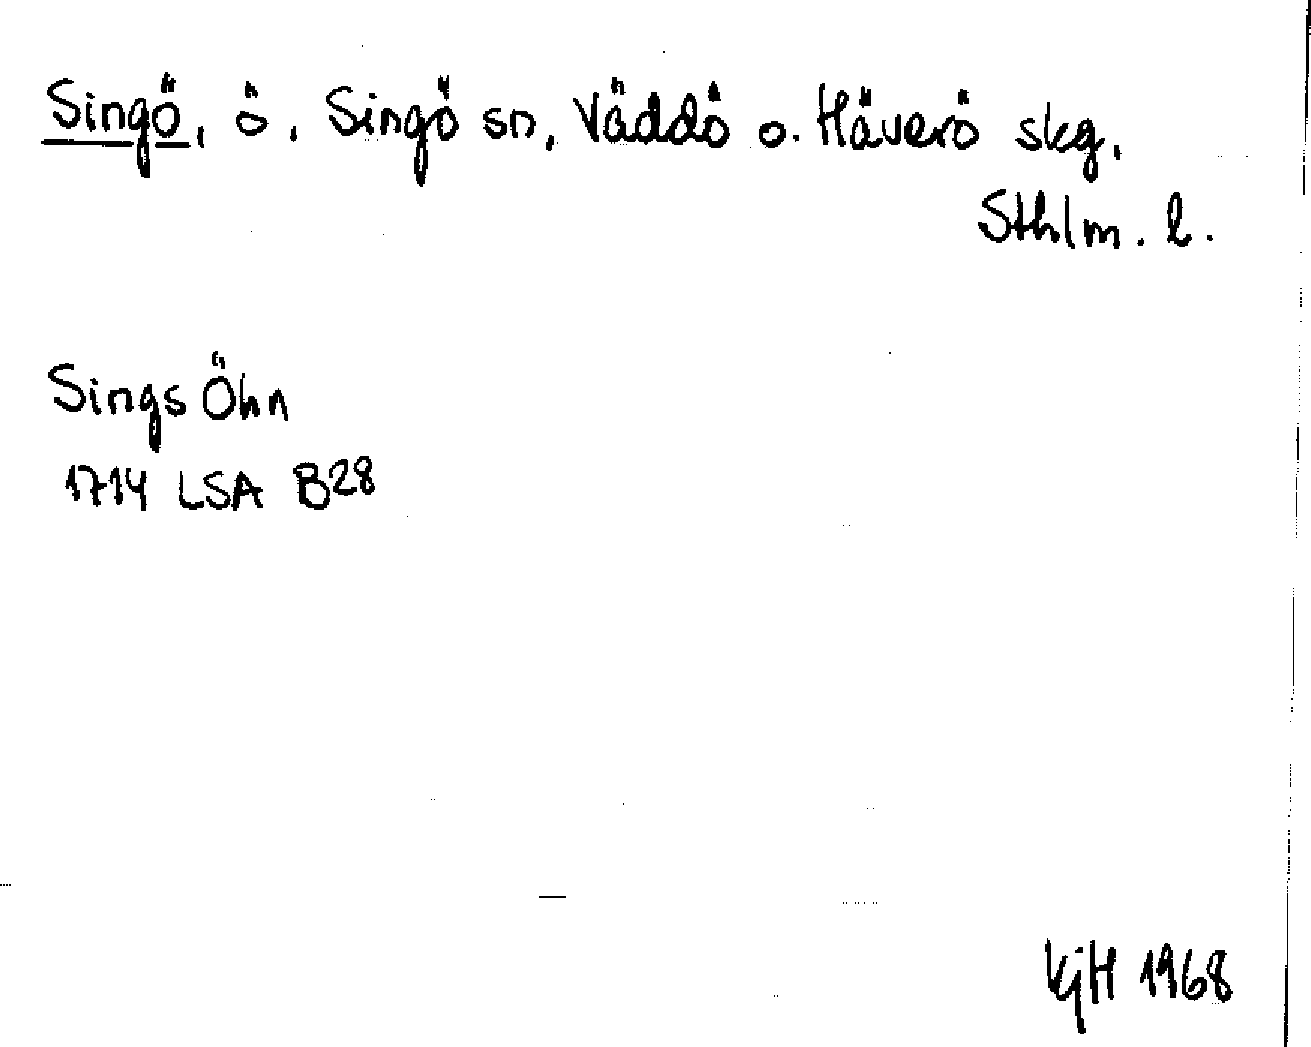 Singö, ö, Singö sn, Väddö o. Häverö skg,
Sthlm. l.
Sings Öhn
1714 LSA B28
KjH 1968